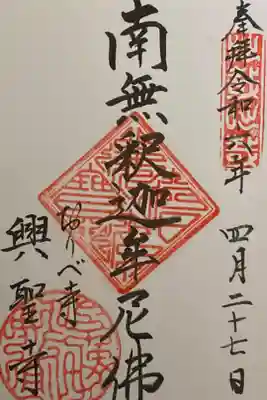 奉拝 令和六年 四月二十七日
南無釈迦牟尼佛
おりべ寺
興聖寺